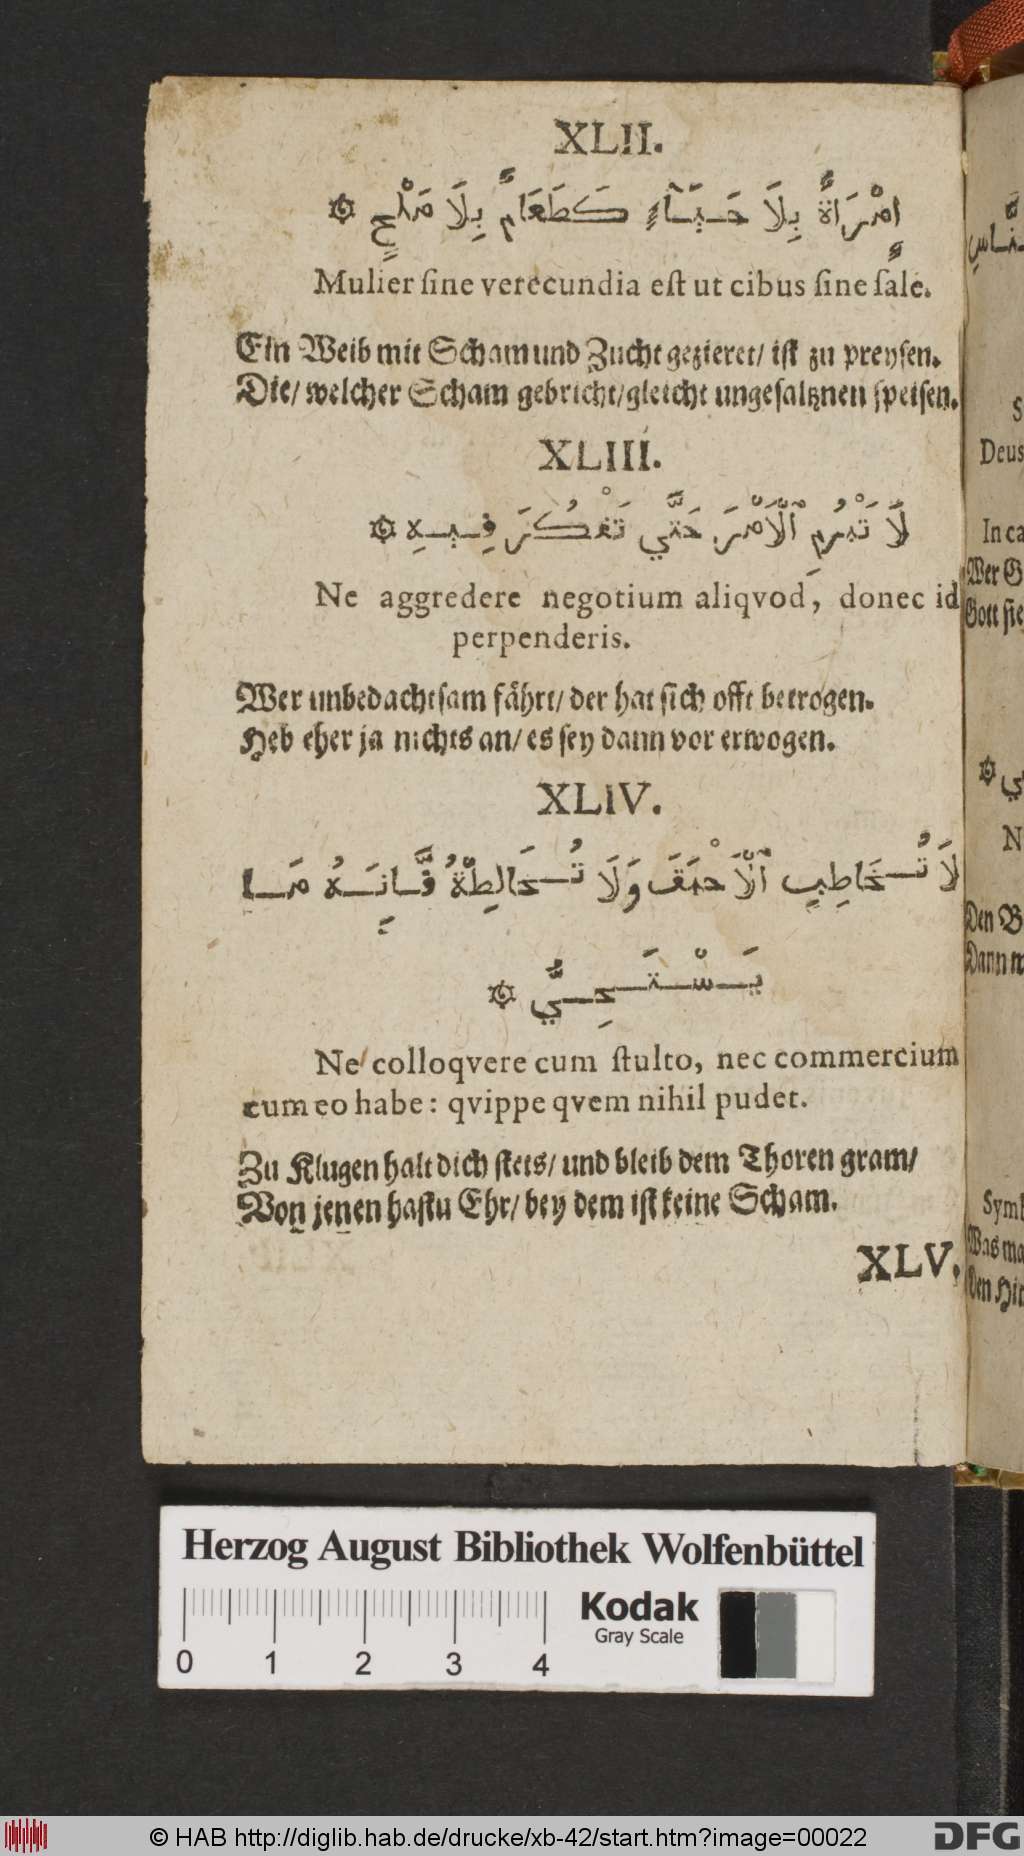 XLII.
اِمْرَاةٌ بِلَا حَيَّآءٍ كَطَعَامٌ بِلَا مَلْحٍ
Mulier ſine verecundia eſt ut cibus ſine ſale.
Ein Weib mit Scham und Zucht gezieret/ iſt zu preyſen.
Die/ welcher Scham gebricht/ gleicht ungeſaltznen ſpeiſen.
XLIII.
لَا تَبْرُمِ ٱلْاَمْرَ حَتَّي تَفْكُرَ فِيهِ
Ne aggredere negotium aliqvod, donec id
perpenderis.
Wer unbedachtſam fährt/ der hat ſich offt betrogen.
Heb eher ja nichts an/ es ſey dann vor erwogen.
XLIV.
لَا تُخَاطِبِ ٱلْاَحْمَقَ وَلَا تُخَالِطْهُ فَّاِنَهُ مَا
يَسْتَحِيُّ
Ne colloqvere cum ſtulto, nec commercium
cum eo habe: qvippe qvem nihil pudet.
Zu Klugen halt dich ſtets/ und bleib dem Thoren gram/
Von jenen haſtu Ehr/ bey dem iſt keine Scham.
XLV.
Deus
In ca
Wer G
Gott ſie
Den B
Dann
Symb
Was ma
Den Hir
Herzog August Bibliothek Wolfenbüttel
0 1 2 3 4
Kodak
Gray Scale
© HAB http://diglib.hab.de/drucke/xb-42/start.htm?image=00022
DFG